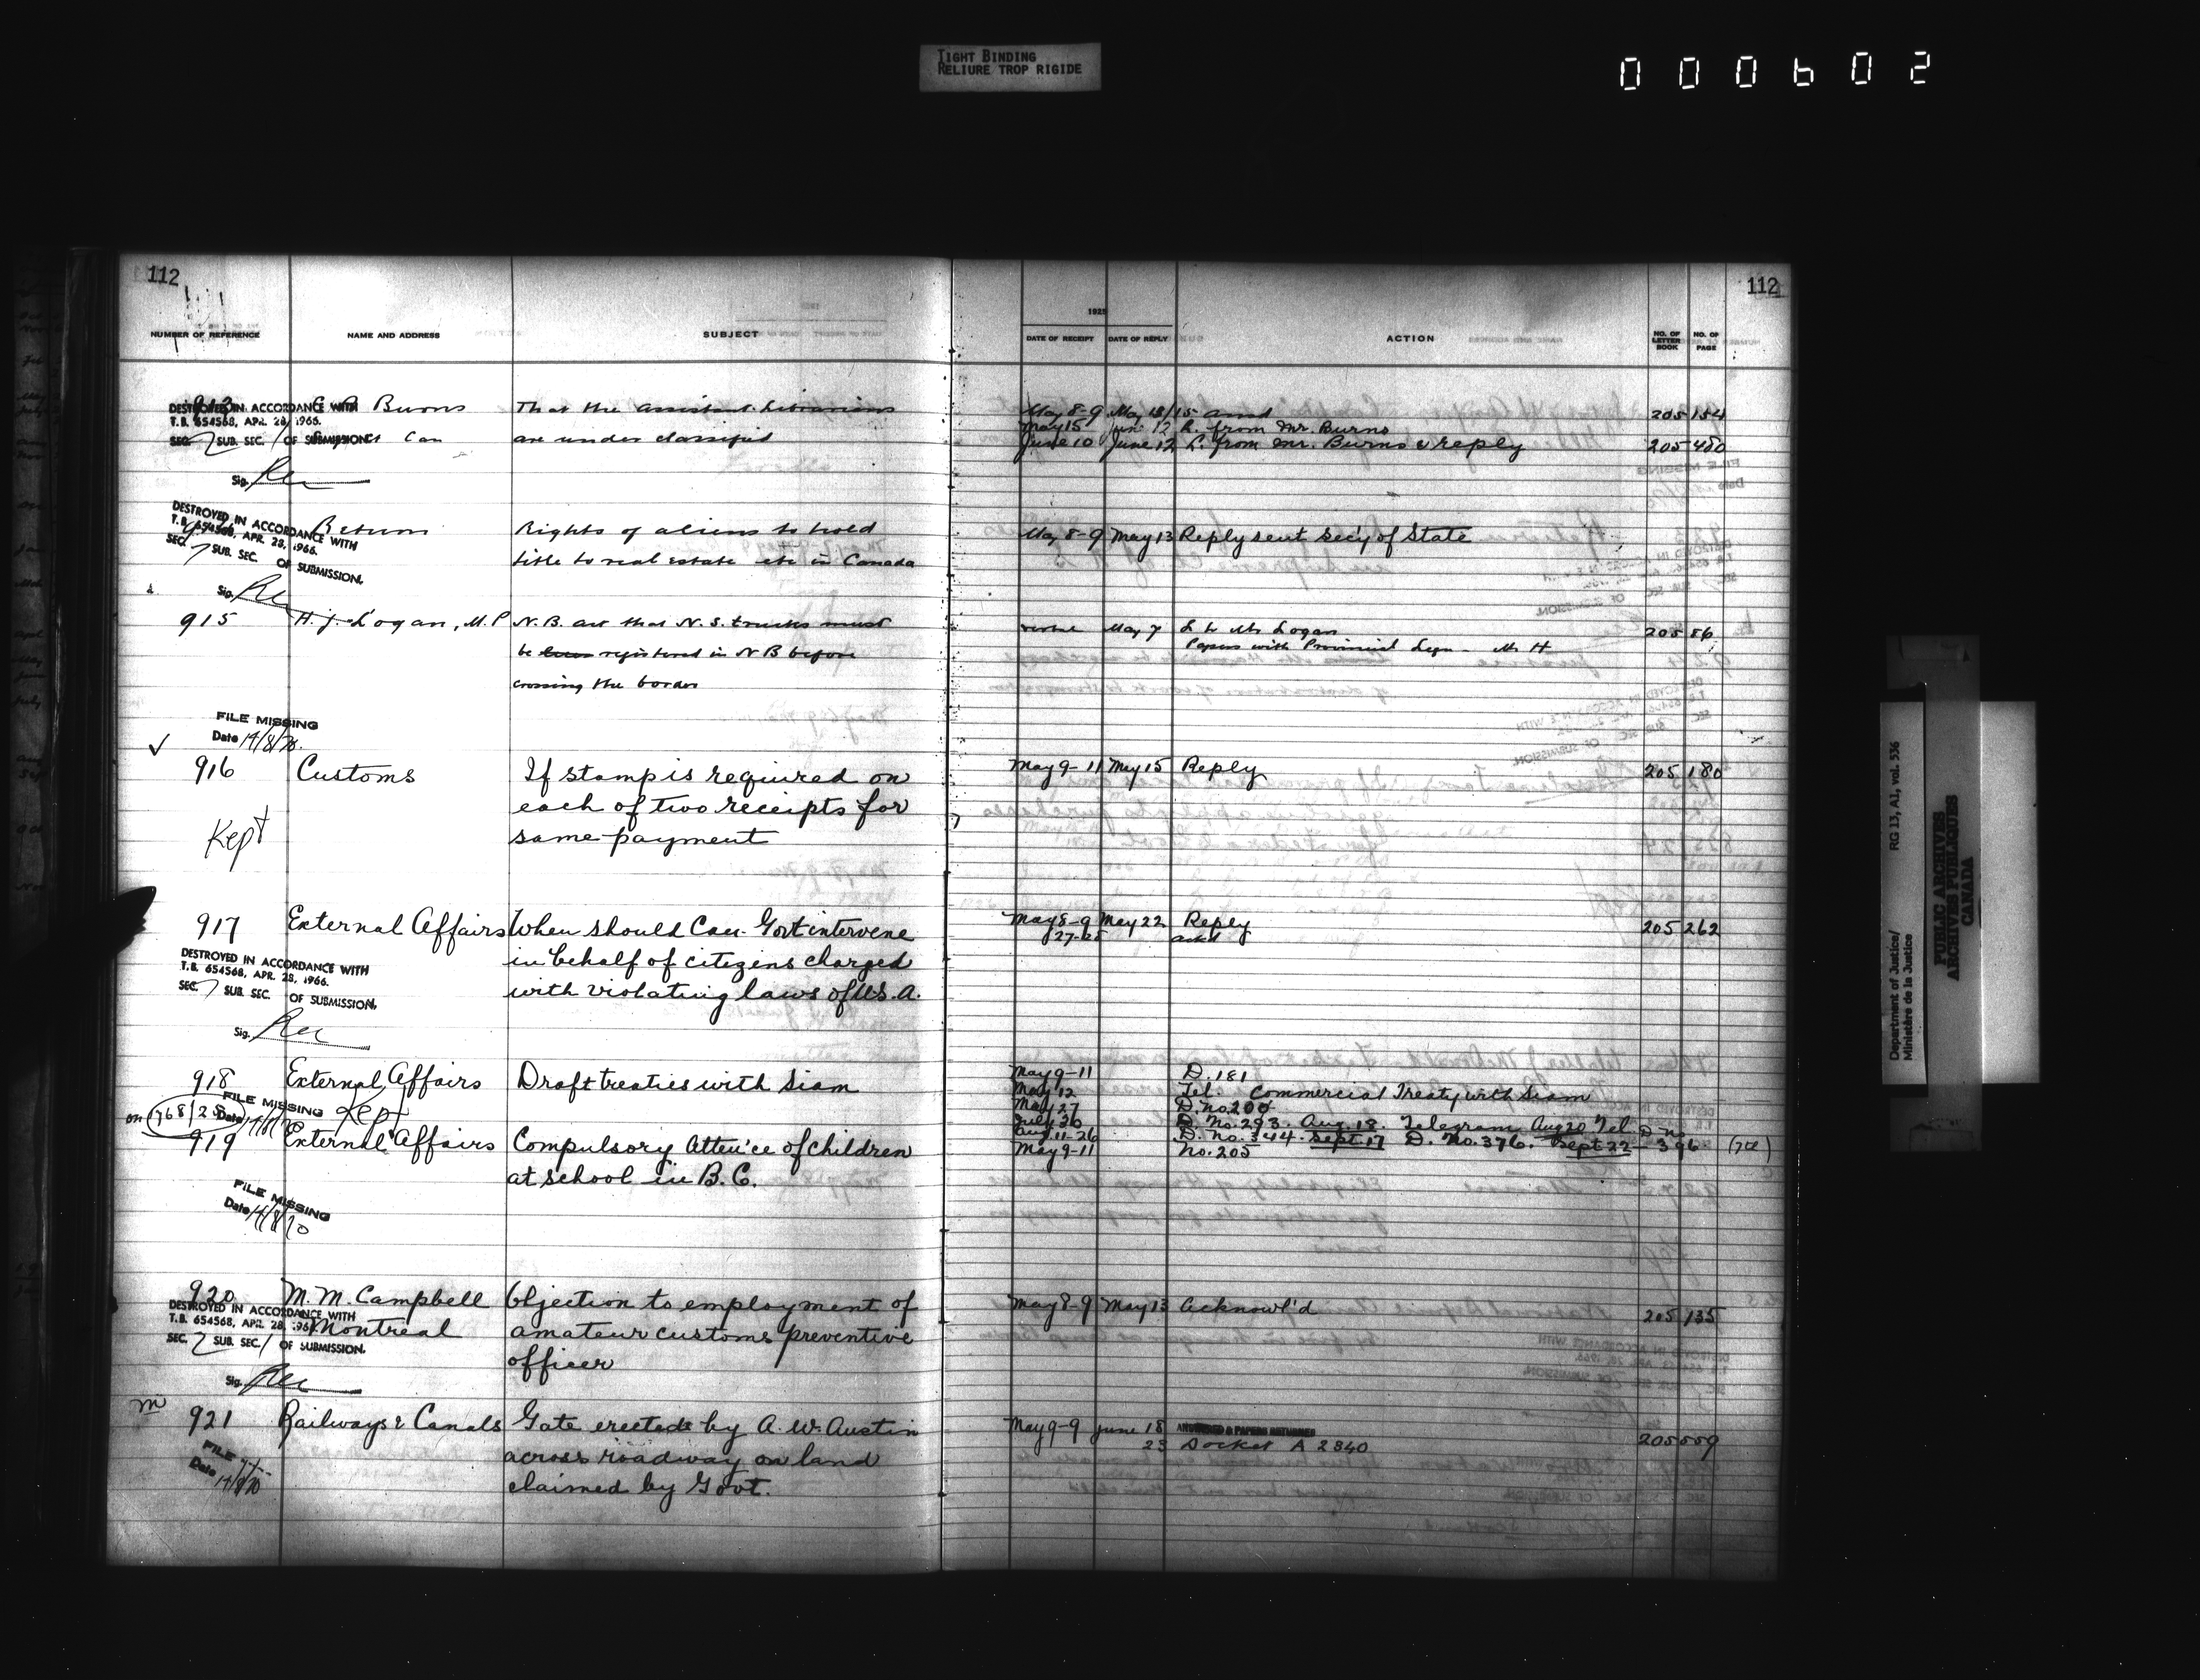 TIGHT BINDING
RELIURE TROP RIGIDE
000602
112
112
NUMBER OF REFERENCE NAME AND ADDRESS SUBJECT
1925
DATE OF RECEIPT DATE OF REPLY ACTION NO. OF LETTER BOOK NO. OF PAGE
913 Burns That the assistant Librarians May 8-9 May 13/15 205 154
DESTROYED IN ACCORDANCE WITH
T.B. 654568, APR. 28, 1966.
SEC. 7 SUB. SEC. / OF SUBMISSION.
are under classified
May 15 Jun 12 L. from Mr. Burns
June 10 June 12 L. from Mr. Burns & reply 205 480
Sig.
DESTROYED IN ACCORDANCE WITH
T.B. 654568, APR. 28, 1966.
SEC. 7 SUB. SEC. OF SUBMISSION.
Return Rights of aliens to hold May 8-9 May 13 Reply sent Sec'y of State
title to real estate etc in Canada
Sig.
915 H. J. Logan, M.P N.B. act that N.S. trucks must May 7 L to Mr Logan 205 86
be registered in N B before Papers with Provincial Legn - Mr H
crossing the border
FILE MISSING
Date 14/8/70.
916 Customs If stamp is required on May 9-11 May 15 Reply 205 180
each of two receipts for
Kept same payment
917 External Affairs When should Can. Govt intervene May 8-9 May 22 Reply 205 262
27-28 ackd
in behalf of citizens charged
with violating laws of U.S.A.
DESTROYED IN ACCORDANCE WITH
T.B. 654568, APR. 28, 1966.
SEC. 7 SUB. SEC. OF SUBMISSION.
Sig.
918 External Affairs Draft treaties with Siam May 9-11 D. 181
May 12 Tel. Commercial Treaty with Siam
FILE MISSING Kept
on 768/28 Date 14/8/70
May 27 D. No. 200
July 30 D. No. 293. Aug. 18. Telegram Aug 20 Tel.
Aug 11-26 D. No. 344. Sept. 17 D. No. 376. Sept 22 - D. No. 396
919 External Affairs Compulsory Atten'ce of children May 9-11 No. 205
at school in B.C.
FILE MISSING
Date 14/8/70
920 M. M. Campbell Objection to employment of May 8-9 May 13 Acknowl'd 205 135
DESTROYED IN ACCORDANCE WITH
T.B. 654568, APR. 28, 1966.
SEC. 7 SUB. SEC. / OF SUBMISSION.
Montreal amateur customs preventive
officer
Sig.
m
921 Railways & Canals Gate erected by A. W. Austin May 9-9 June 18 ANSWERED & PAPERS RETURNED 205 509
23 Docket A 2840
across roadway on land
claimed by Govt.
FILE
Date 14/8/70
Department of Justice/ RG 13, A1, vol. 536
Ministère de la Justice
PUBLIC ARCHIVES
ARCHIVES PUBLIQUES
CANADA